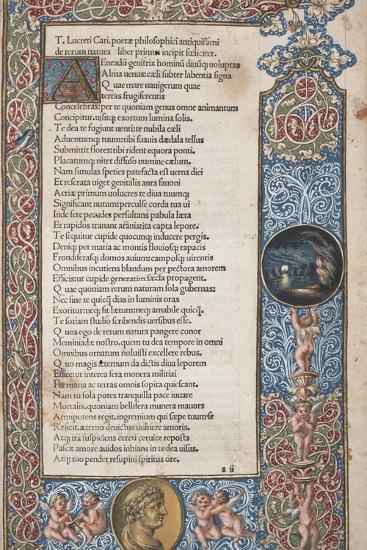 T. Lucreti Cari. poetæ philosophici antiquissimi
de rerum natura liber primus incipit fœliciter.
AEneadū genitrix hominū diuūq; uoluptas
Alma uenus: cæli subter labentia signa
Quæ mare nauigerum quæ
terras frugiferentis
Concelebras: per te quoniam genus omne animantum
Concipitur. uisitq; exortum lumina solis.
Te dea te fugiunt uentite nubila cæli
Aduentumq; tuum: tibi suauis dædala tellus
Submittit flores: tibi rident equora ponti.
Placatumq; nitet diffuso numine cælum.
Nam simulas speties patefacta est uerna diei
Et reserata uiget genitalis aura fauoni
Aeriæ primum uolucres te diua tuumq;
Significant nutum: perculse corda tua ui
Inde fere pecudes persultans pabula læta
Et rapidos tranant
capta lepore.
Te sequitur cupide quocunq; inducere pergis.
Deniq; per maria ac montis fluuiosq; rapacis
Frondiferasq; domos auium: camposq; uirentis
Omnibus incutiens blandum per pectora amorem
Efficit ut cupide generatim sæcla propagent.
Quæ quoniam rerum naturam sola gubernas:
Nec sine te quicq̃ dias in luminis oras
Exoritur: neq; fit lætum: neq; amabile quicq̃.
Te sotiam studio scribendis uersibus esse.
Quos ego de rerum natura pangere conor
Meminiadæ nostro. quem tu dea tempore in omni
Omnibus ornatum noluisti excellere rebus.
Quo magis æternum da dictis diua leporem
Effice ut interea fera monera militiai
Per maria ac terras omnis sopita quiescant.
Nam tu sola potes tranquilla pace iuuare
Mortalis. quoniam bellifera munera mauors
Armipotens regit. ingremium qui sæpe tuum se
Reiicit. æterno deuictus uulnere amoris.
Atq; ita suspiciens cereti ceruice reposta
Pascit amore auidos inhians in te dea uisus.
Atq; tuo pendet resupini spiritus ore.
a ii